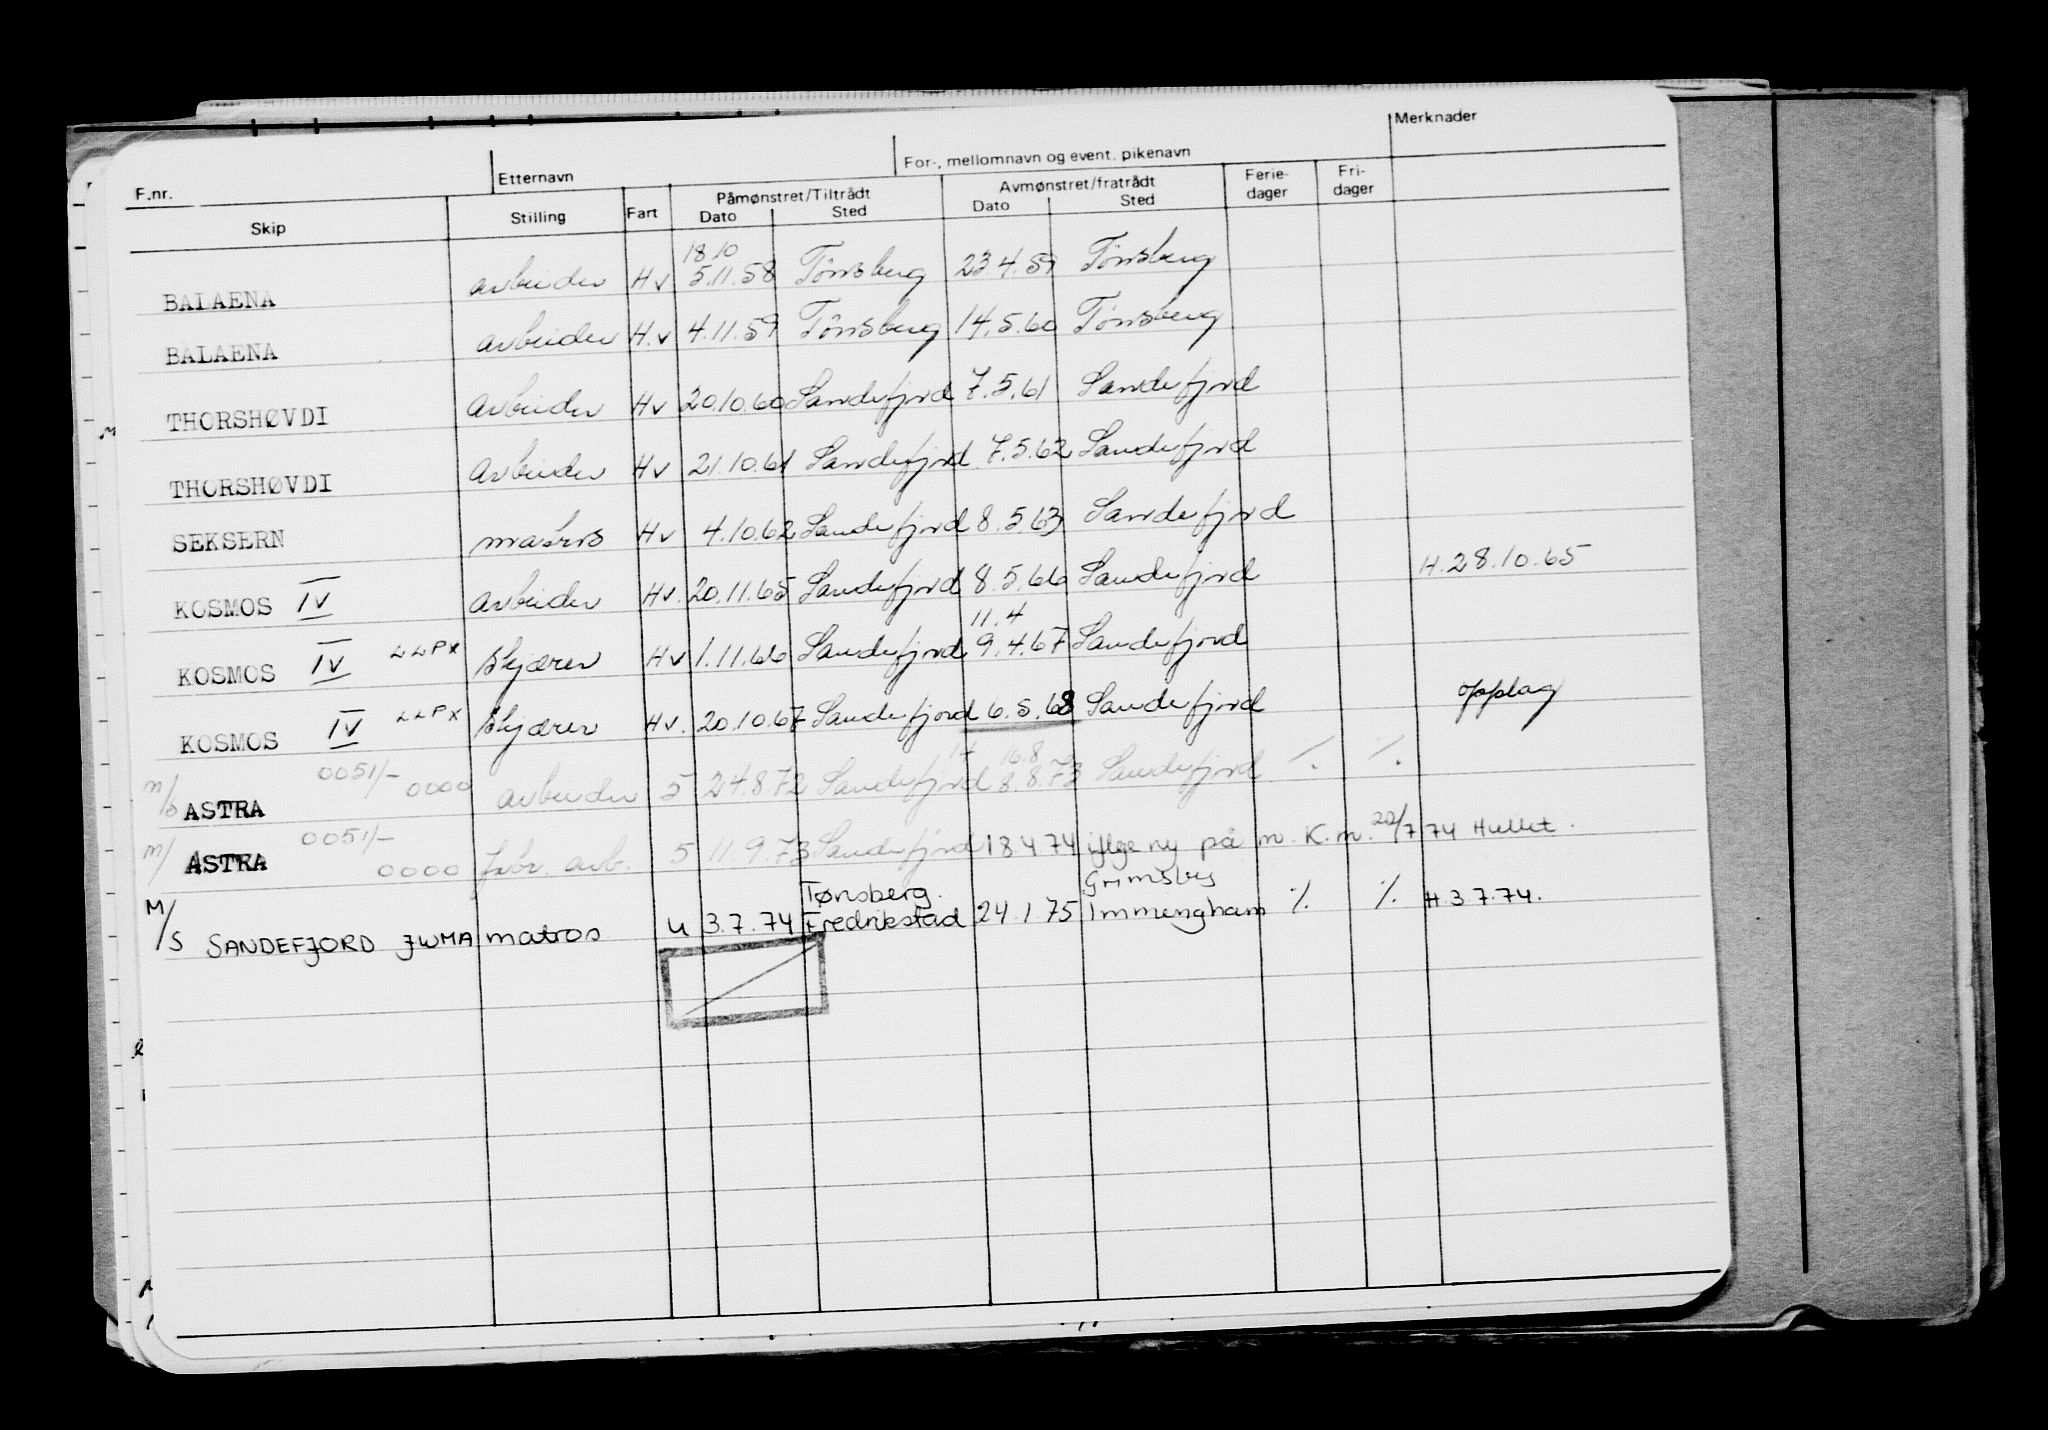 F.nr. Etternavn For-, mellomnavn og event. pikenavn Merknader
Skip Stilling Fart Påmønstret/Tiltrådt Dato Sted Avmønstret/fratrådt Dato Sted Ferie-dager Fri-dager
18 10
BALAENA arbeider Hv 5.11.58 Tönsberg 23 4.59 Tönsberg
BALAENA arbeider H.v 4.11.59 Tönsberg 14.5.60 Tönsberg
THORSHØVDI arbeider Hv 20.10.60 Sandefjord 7.5.61 Sandefjord
THORSHØVDI arbeider Hv 21.10.61 Sandefjord 7.5.62 Sandefjord
SEKSERN matros Hv 4.10.62 Sandefjord 8.5.63 Sandefjord
KOSMOS IV arbeider Hv. 20.11.65 Sandefjord 8.5.66 Sandefjord H.28.10.65
11.4
KOSMOS IV LLPX skjærer Hv 1.11.66 Sandefjord 9.4.67 Sandefjord
KOSMOS IV LLPX skjærer Hv. 20.10.67 Sandefjord 6.5.68 Sandefjord opplag
14 16.8
M/S ASTRA 0051/- 0000 arbeider 5 24.8.72 Sandefjord 8.8.73 Sandefjord % %
M/ ASTRA 0051/- 0000 fabr. arb. 5 11.9.73 Sandefjord 18 4 74 iflge ny på m. K. m. 20/7 74 Hullet.
Tønsberg. Grimsby
M/S SANDEFJORD JWMA matros U 3.7.74 Fredrikstad 24.1.75 Immengham % % H.3 7.74.